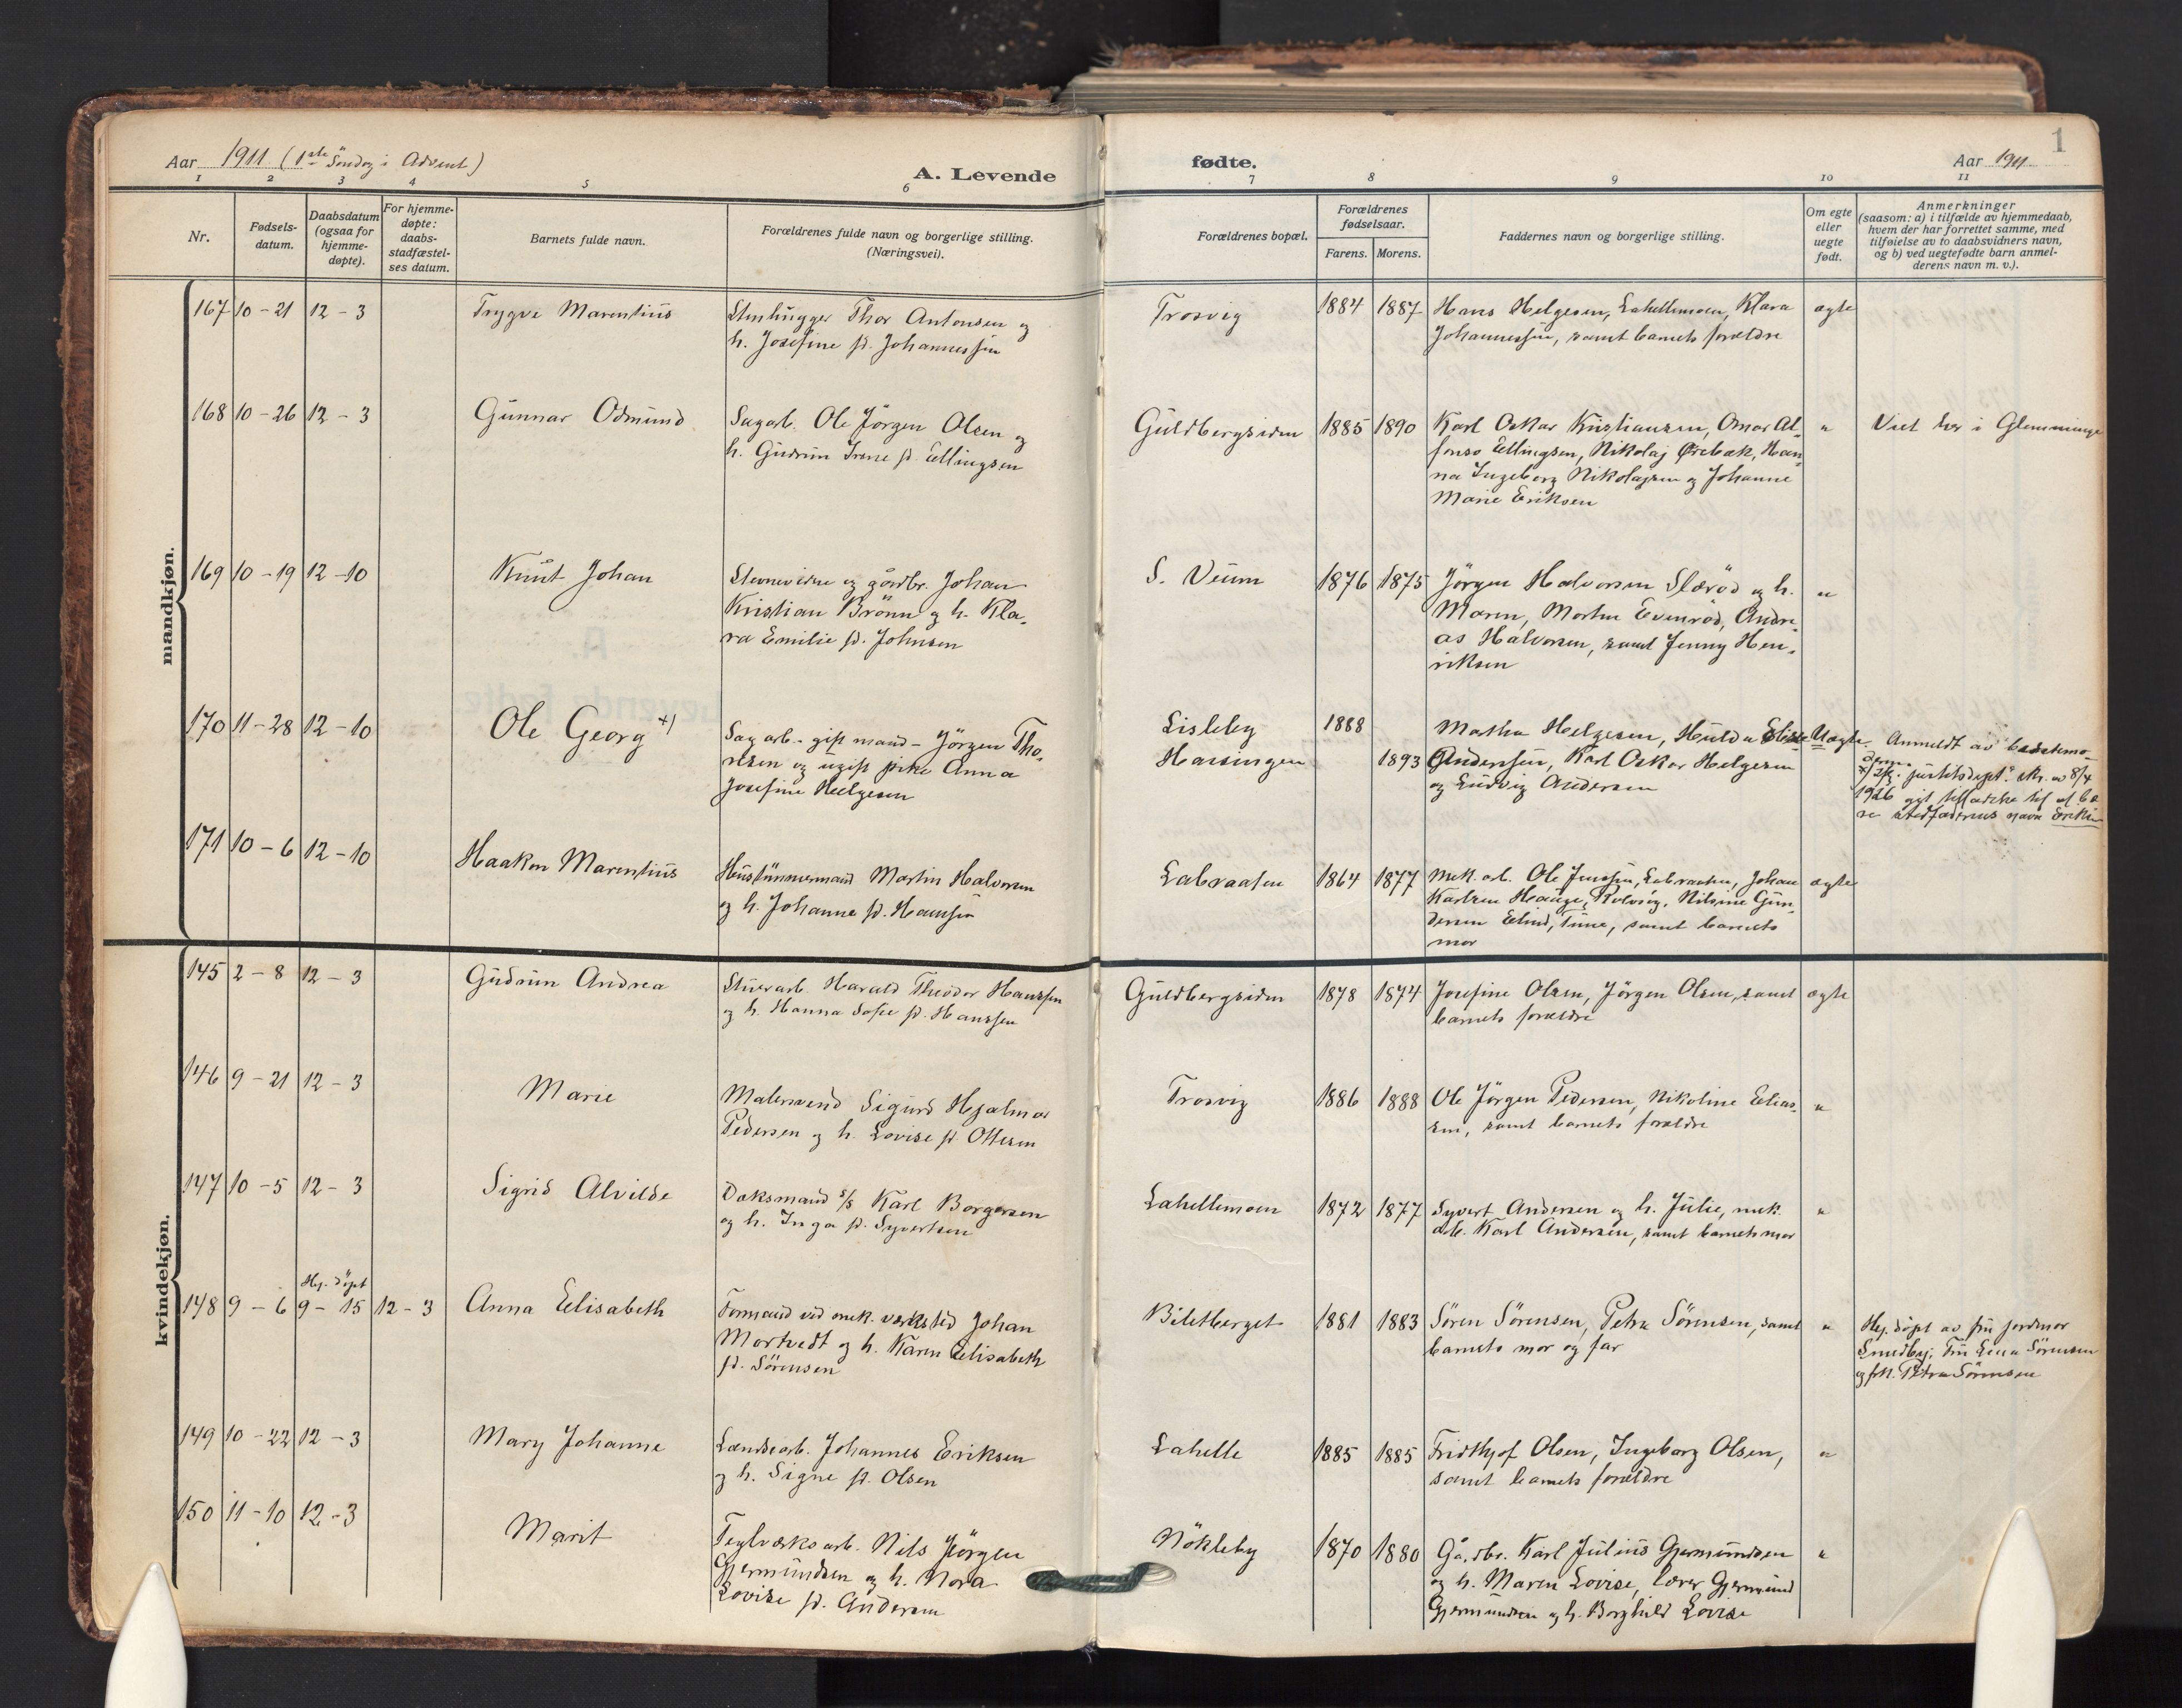 1
Aar 1911 (1ste Söndag i Advent)
A. Levende
fødte.
Aar 1911
1 2 3 4 5 6 7 8 9 10 11
Nr.
Fødsels-
datum.
Daabsdatum
(ogsaa for
hjemme-
døpte).
For hjemme-
døpte:
daabs-
stadfæstel-
ses datum.
Barnets fulde navn.
Forældrenes fulde navn og borgerlige stilling.
(Næringsvei).
Forældrenes bopæl.
Forældrenes
fødselsaar.
Farens. Morens.
Faddernes navn og borgerlige stilling.
Om egte
eller
uegte
født.
Anmerkninger
(saasom: a) i tilfælde av hjemmedaab,
hvem der har forrettet samme, med
tilføielse av to daabsvidners navn,
og b) ved uegtefødte barn anmel-
derens navn m. v.).
mandkjøn.
167 10-21 12-3
Trygve Marentius
Stenhugger Thor Antonsen og
h. Josefine f. Johannessen
Trosvig
1884 1887
Hans Helgesen, Lahellemoen, Klara
Johannessen, samt barnets forældre
ægte
168 10-26 12-3
Gunnar Odmund
Sagarb. Ole Jörgen Olsen og
h. Gudrun Irene f. Ellingsen
Guldbergsiden
1885 1890
Karl Oskar Kristiansen, Omar Al-
fonso Ellingsen, Nikolaj Ørebæk, Han-
na Ingeborg Nikolajsen og Johanne
Marie Eriksen
"
Viet her i Glemminge
169 10-19 12-10
Knut Johan
Stevnevidne og gårdbr. Johan
Kristian Brönn og h. Kla-
ra Emilie f. Johnsen
S. Veum
1876 1875
Jörgen Halvorsen Slæröd og h.
Maren, Morten Evenröd, Andre-
as Halvorsen, samt Jenny Hen-
riksen
"
170 11-28 12-10
Ole Georg +)
Sagarb. - gift mand - Jörgen Tho-
resen og ugift pike Anna
Josefine Helgesen
Lisleby
Hassingen
1888
1893
Martha Helgesen, Hulda Elise
Andersen, Karl Oskar Helgesen
og Ludvig Andersen
Uægte
Anmeldt av bestemo-
deren.
justitsdept. skr. av 8/4
1926 git tilladelse til at bæ-
re stedfaderens navn Eriksen
171 10-6 12-10
Haakon Marentius
Hustømmermand Martin Halvorsen
og h. Johanne f. Hansen
Labraaten
1864 1877
Mek. arb. Ole Jensen, Labraaten, Johan
Karlsen Hauge, Rolvsöy, Nilsine Gun-
dersen Elind, Tune, samt barnets
mor
ægte
kvindekjøn.
145 2-8 12-3
Gudrun Andrea
Stuerarb. Harald Theodor Hanssen
og h. Hanna Sofie f. Hanssen
Guldbergsiden
1878 1874
Josefine Olsen, Jörgen Olsen, samt
barnets forældre
ægte
146 9-21 12-3
Marie
Malersvend Sigurd Hjalmar
Pedersen og h. Lovise f. Ottesen
Trosvig
1886 1888
Ole Jörgen Pedersen, Nikoline Elias-
sen, samt barnets forældre
"
147 10-5 12-3
Sigrid Alvilde
Daksmand s/s Karl Borgersen
og h. Inga f. Syvertsen
Lahellemoen
1872 1877
Syvert Andersen og h. Julie, mek.
arb. Karl Andersen, samt barnets mor
"
Hj. döpt
148 9-6 9-15 12-3
Anna Elisabeth
Formand ved mek. verksted Johan
Mortvedt og h. Karen Elisabeth
f. Sörensen
Biletberget
1881 1883
Sören Sörensen, Petra Sörensen, samt
barnets mor og far
"
Hj. döpt av fru jordmor
Smedby; Fru Lina Sörensen
og frk. Petra Sörensen
149 10-22 12-3
Mary Johanne
Landsearb. Johannes Eriksen
og h. Signe f. Olsen
Lahelle
1885 1885
Fridthjof Olsen, Ingeborg Olsen,
samt barnets forældre
"
150 11-10 12-3
Marit
Teglverksarb. Nils Jörgen
Gjermundsen og h. Nora
Lovise f. Andersen
Nökleby
1870 1880
Gårdbr. Karl Julius Gjermundsen
og h. Maren Lovise, lærer Gjermund
Gjermundsen og h. Borghild Lovise
"